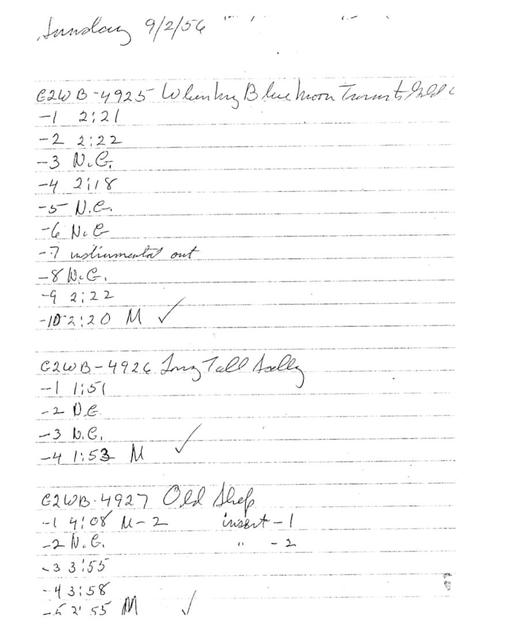 Sunday 9/2/56
G2WB-4925 When My Blue Moon Turns to Gold
-1 2:21
-2 2:22
-3 N.G.
-4 2:18
-5 N.G.
-6 N.G
-7 instrumental out
-8 N.G.
-9 2:22
-10 2:20 M ✓
G2WB-4926 Long Tall Sally
-1 1:51
-2 N.G
-3 N.G.
-4 1:53 M ✓
G2WB-4927 Old Shep
-1 4:08 M-2 insert -1
-2 N.G. " -2
-3 3:55
-4 3:58
-5 3:55 M ✓